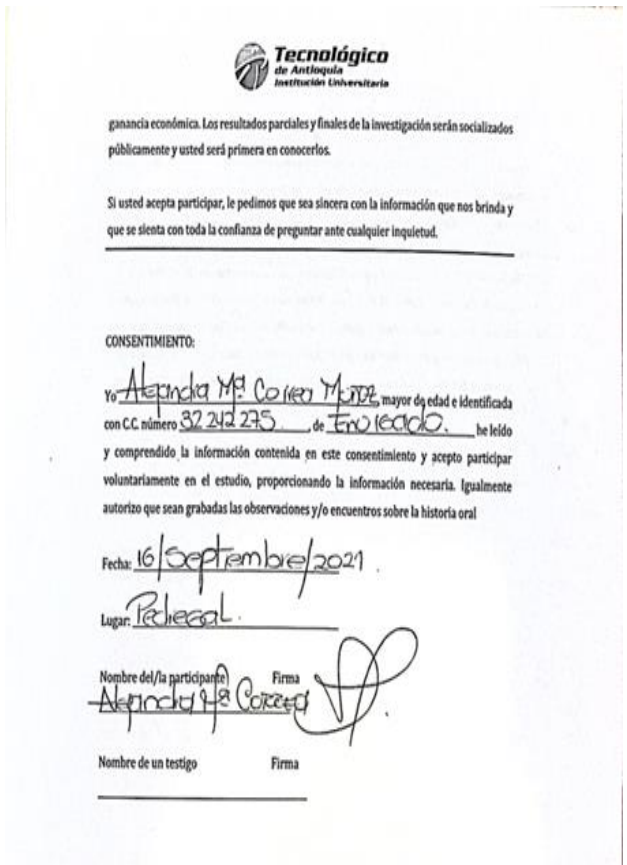 Tecnológico
de Antioquia
Institución Universitaria
ganancia económica. Los resultados parciales y finales de la investigación serán socializados
públicamente y usted será primera en conocerlos.
Si usted acepta participar, le pedimos que sea sincera con la información que nos brinda y
que se sienta con toda la confianza de preguntar ante cualquier inquietud.
CONSENTIMIENTO:
Yo Alejandra Mª Correa, mayor de edad e identificada
con C.C. número 32 242 275, de Envigado. he leído
y comprendido la información contenida en este consentimiento y acepto participar
voluntariamente en el estudio, proporcionando la información necesaria. Igualmente
autorizo que sean grabadas las observaciones y/o encuentros sobre la historia oral
Fecha: 16/Septiembre/2021.
Lugar: Pedregal.
Nombre del/la participante Firma
Alejandra Mª Correa
Nombre de un testigo Firma